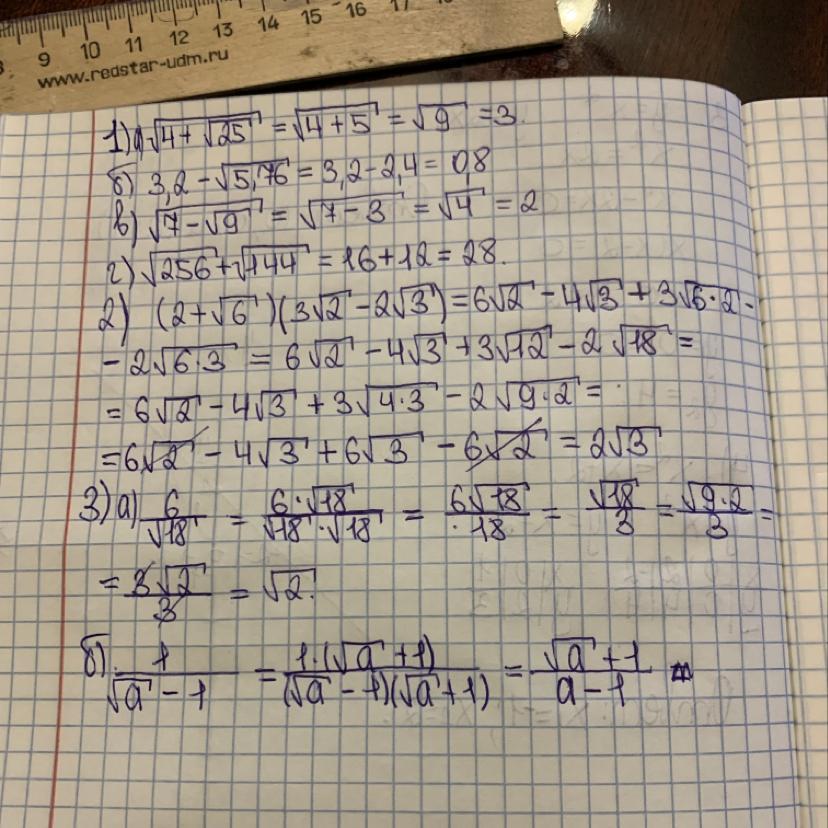 8 9 10 11 12 13 14 15 16 17
www.redstar-udm.ru
1) а √(4+√25) = √(4+5) = √9 = 3.
б) 3,2 - √5,76 = 3,2 - 2,4 = 0,8
в) √(7-√9) = √(7-3) = √4 = 2
г) √256 + √144 = 16 + 12 = 28.
2) (2+√6)(3√2 - 2√3) = 6√2 - 4√3 + 3√(6·2) -
- 2√(6·3) = 6√2 - 4√3 + 3√12 - 2√18 =
= 6√2 - 4√3 + 3√(4·3) - 2√(9·2) =
= 6√2 - 4√3 + 6√3 - 6√2 = 2√3
3) а) 6/√18 = (6·√18)/(√18·√18) = 6√18/18 = √18/3 = √(9·2)/3 =
= 3√2/3 = √2.
б) 1/(√a - 1) = 1·(√a + 1)/((√a - 1)(√a + 1)) = (√a + 1)/(a - 1)